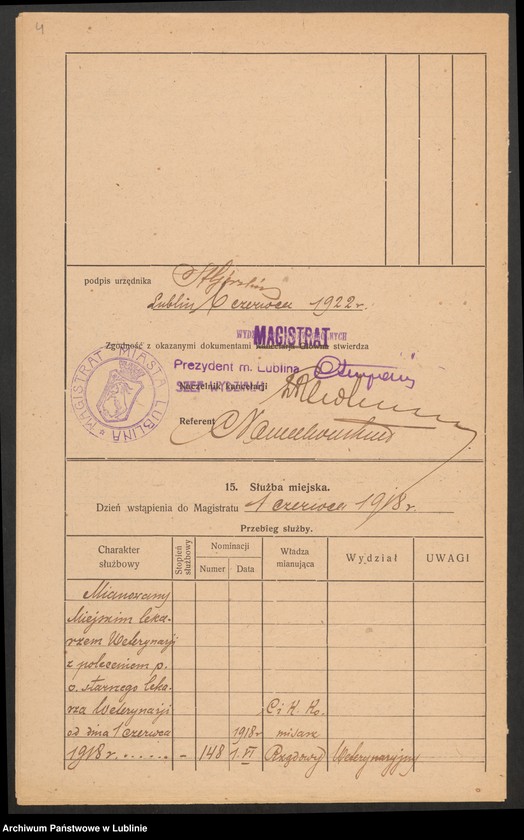 4
podpis urzędnika
Lublin 6 czerwca 1922 r.
MAGISTRAT
Zgodność z okazanymi dokumentami Kancelarja Główna stwierdza
Prezydent m. Lublina
Naczelnik kancelarji
MAGISTRAT MIASTA LUBLINA
Referent
15. Służba miejska.
Dzień wstąpienia do Magistratu 1 czerwca 1918 r.
Przebieg służby.
Charakter służbowy
Stopień służbowy
Nominacji
Numer
Data
Władza mianująca
Wydział
UWAGI
Mianowany
Miejskim leka-
rzem Weterynarji
z poleceniem p.
o. starszego leka-
rza Weterynarji
od dnia 1 czerwca 1918 r.
1918 r. ...... - 148 1.VI Rządowy Weterynaryjny
Archiwum Państwowe w Lublinie